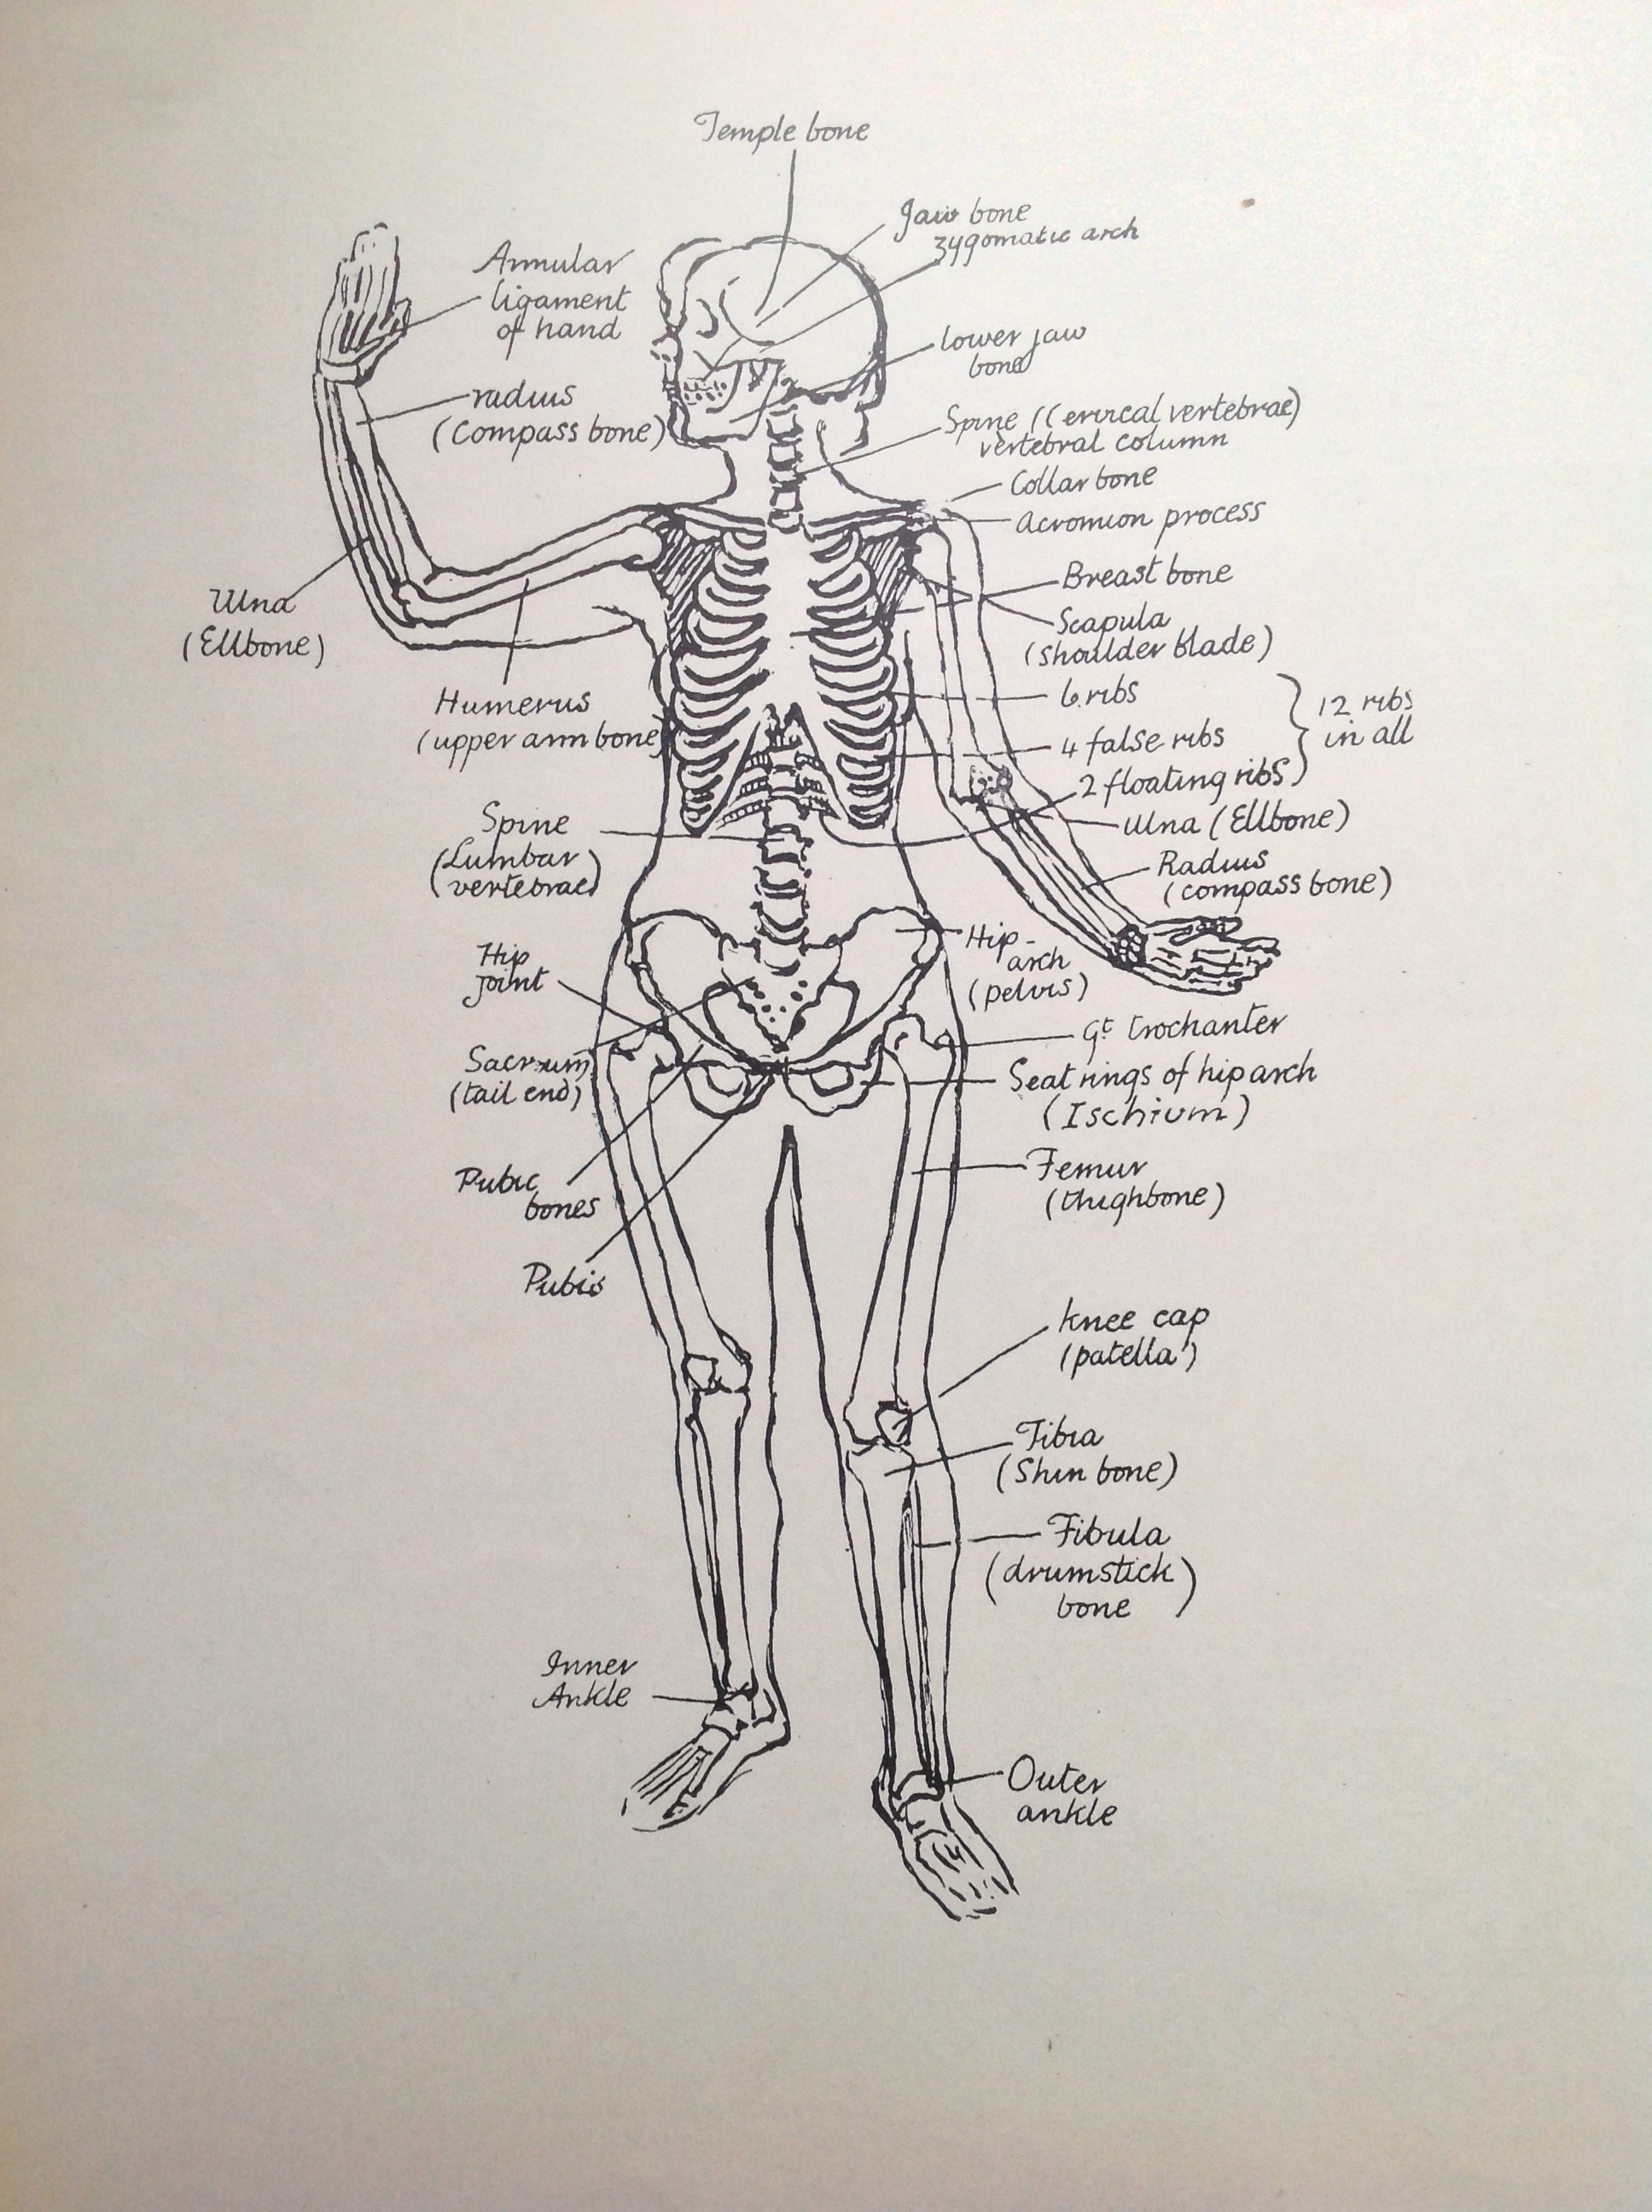 Temple bone
Jaw bone
zygomatic arch
Annular
ligament
of hand
lower jaw
bone
radius
(Compass bone)
Spine (Cervical vertebrae)
vertebral column
Collar bone
Acromion process
Breast bone
Ulna
(Ellbone)
Scapula
(shoulder blade)
Humerus
(upper arm bone)
6 ribs
4 false ribs
2 floating ribs
12 ribs
in all
Spine
(Lumbar
vertebrae)
Ulna (Ellbone)
Radius
(compass bone)
Hip
joint
Hip-
arch
(pelvis)
Sacrum
(tail end)
Gt trochanter
Seat rings of hip arch
(Ischium)
Pubic
bones
Femur
(thighbone)
Pubis
knee cap
(patella)
Tibia
(Shin bone)
Fibula
(drumstick
bone)
Inner
Ankle
Outer
ankle